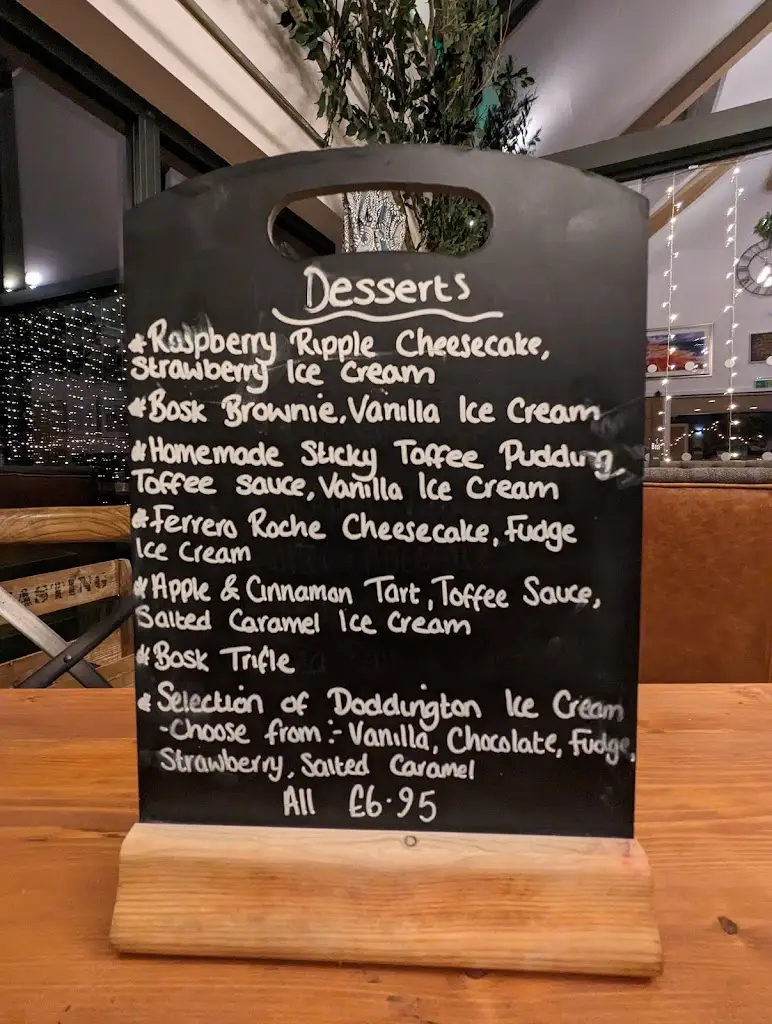 Desserts
*Raspberry Ripple Cheesecake,
Strawberry Ice Cream
*Bosk Brownie, Vanilla Ice Cream
*Homemade Sticky Toffee Pudding,
Toffee sauce, Vanilla Ice Cream
*Ferrero Roche Cheesecake, Fudge
Ice Cream
*Apple & Cinnamon Tart, Toffee Sauce,
Salted Caramel Ice Cream
*Bosk Trifle
*Selection of Doddington Ice Cream
-Choose from:- Vanilla, Chocolate, Fudge,
Strawberry, Salted Caramel
All £6.95
ASTING